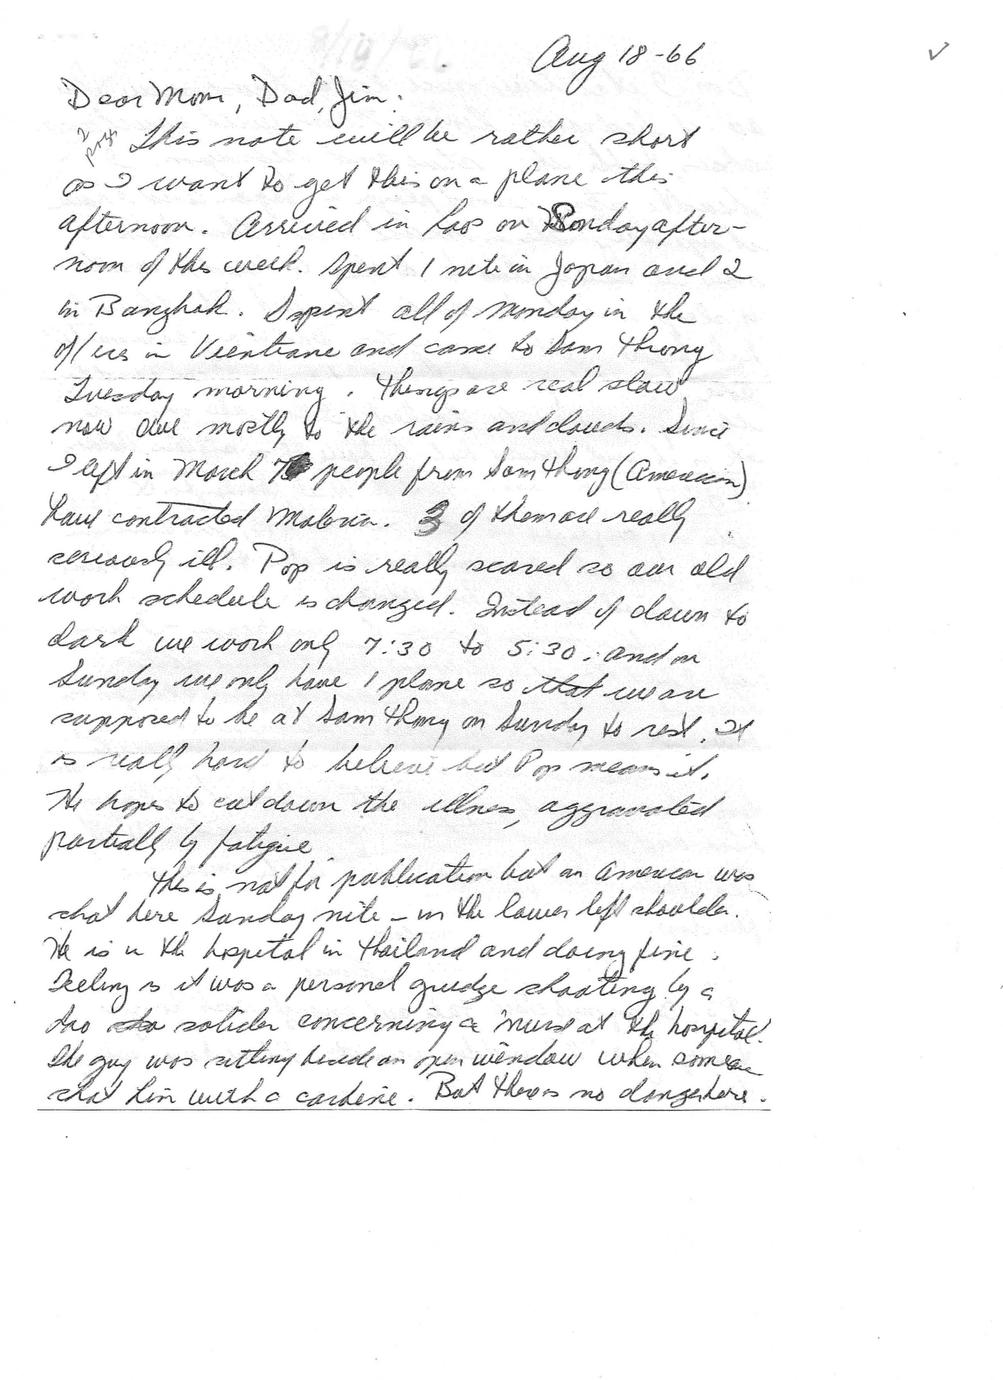 Aug 18-66
Dear Mom, Dad, Jim:
2 pgs
This note will be rather short
as I want to get this on a plane this
afternoon. Arrived in Laos on Sonday after-
noon of this week. Spent 1 nite in Japan and 2
in Bangkok. I spent all of Monday in the
offices in Vientiane and came to Sam Thong
Tuesday morning. Things are real slow
now due mostly to the rains and clouds. Since
I left in March 7 people from Sam Thong (American)
have contracted Malaria. 3 of them are really
seriously ill. Pop is really scared so our old
work schedule is changed. Instead of dawn to
dark we work only 7:30 to 5:30. and on
Sunday we only have 1 plane so that we are
supposed to be at Sam Thong on Sunday to rest. It
is really hard to believe but Pop means it.
He hopes to cut down the illness, aggravated
partially by fatigue
This is not for publication but an American was
shot here Sunday nite - in the lower left shoulder.
He is in the hospital in Thailand and doing fine.
Feeling is it was a personal grudge shooting by a
Lao solider concerning a nurse at the hospital.
The guy was sitting beside an open window when someone
shot him with a carbine. But there is no danger here.